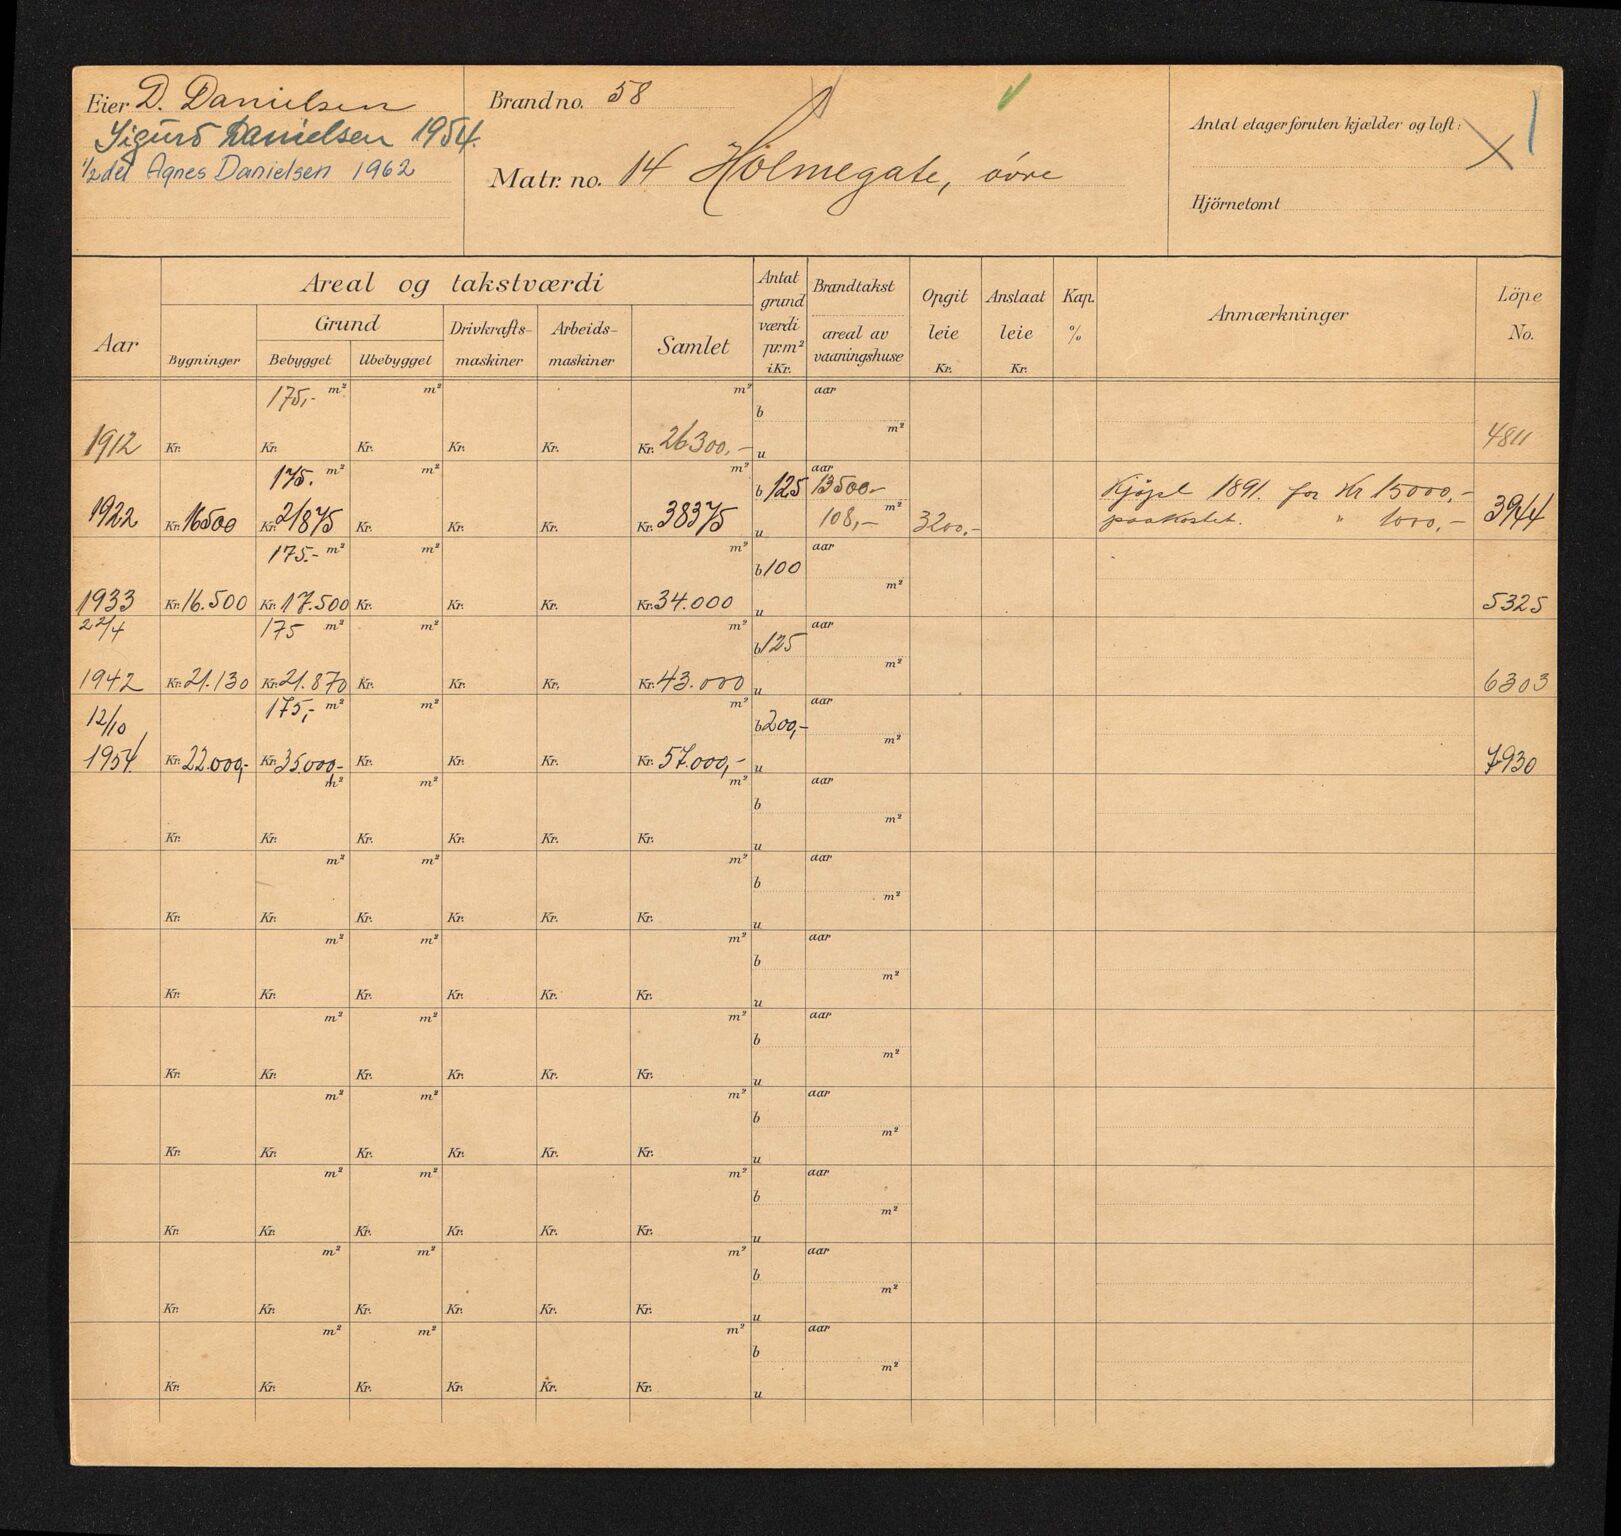 Eier D. Danielsen
Sigurd Danielsen 1954.
1/2 del Agnes Danielsen 1962
Brand no. 58
Matr. no. 14 Holmegate, övre
Antal etager foruten kjælder og loft:
Hjörnetomt
Aar
Areal og takstværdi
Bygninger
Grund
Bebygget
Ubebygget
Drivkrafts-
maskiner
Arbeids-
maskiner
Samlet
Antat
grund
værdi
pr. m²
i Kr.
Brandtakst
areal av
vaaningshuse
Opgit
leie
Kr.
Anslaat
leie
Kr.
Kap.
%
Anmærkninger
Löpe
No.
175,- m² m² m² b aar
1912 Kr. Kr. Kr. Kr. Kr. Kr. 26300,- u m² 4811
175. m² m² m² b 125 aar 13500,- Kjöpt 1891. for Kr 15000,-
1922 Kr. 16500 Kr. 21875 Kr. Kr. Kr. Kr. 38375 u 108,- m² 3200,- paakostet. " 1000,- 3944
175.- m² m² m² b 100 aar
1933 Kr. 16.500 Kr. 17.500 Kr. Kr. Kr. Kr. 34.000 u m² 5325
22/4 175 m² m² m² b 125 aar
1942 Kr. 21.130 Kr. 21.870 Kr. Kr. Kr. Kr. 43.000 u m² 6303
12/10 175,- m² m² m² b 200,- aar
1954. Kr. 22.000,- Kr. 35.000,- Kr. Kr. Kr. Kr. 57.000,- u m² 7930
m² m² m² b aar
Kr. Kr. Kr. Kr. Kr. Kr. u m²
m² m² m² b aar
Kr. Kr. Kr. Kr. Kr. Kr. u m²
m² m² m² b aar
Kr. Kr. Kr. Kr. Kr. Kr. u m²
m² m² m² b aar
Kr. Kr. Kr. Kr. Kr. Kr. u m²
m² m² m² b aar
Kr. Kr. Kr. Kr. Kr. Kr. u m²
m² m² m² b aar
Kr. Kr. Kr. Kr. Kr. Kr. u m²
m² m² m² b aar
Kr. Kr. Kr. Kr. Kr. Kr. u m²
m² m² m² b aar
Kr. Kr. Kr. Kr. Kr. Kr. u m²